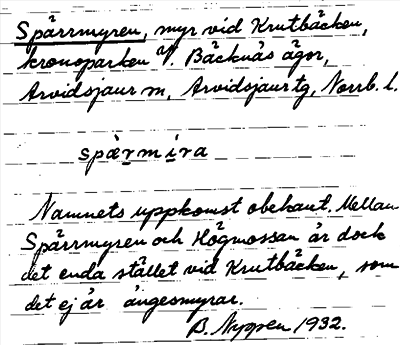 Spärrmyren, myr vid Krutbäcken,
kronoparken V. Bäcknäs ägor,
Arvidsjaur sn, Arvidsjaur tg, Norrb. l.
spæ̀rmira
Namnets uppkomst obekant. Mellan
Spärrmyren och Högmossan är dock
det enda stället vid Krutbäcken, som
det ej är ängesmyrar.
B. Nygren 1932.